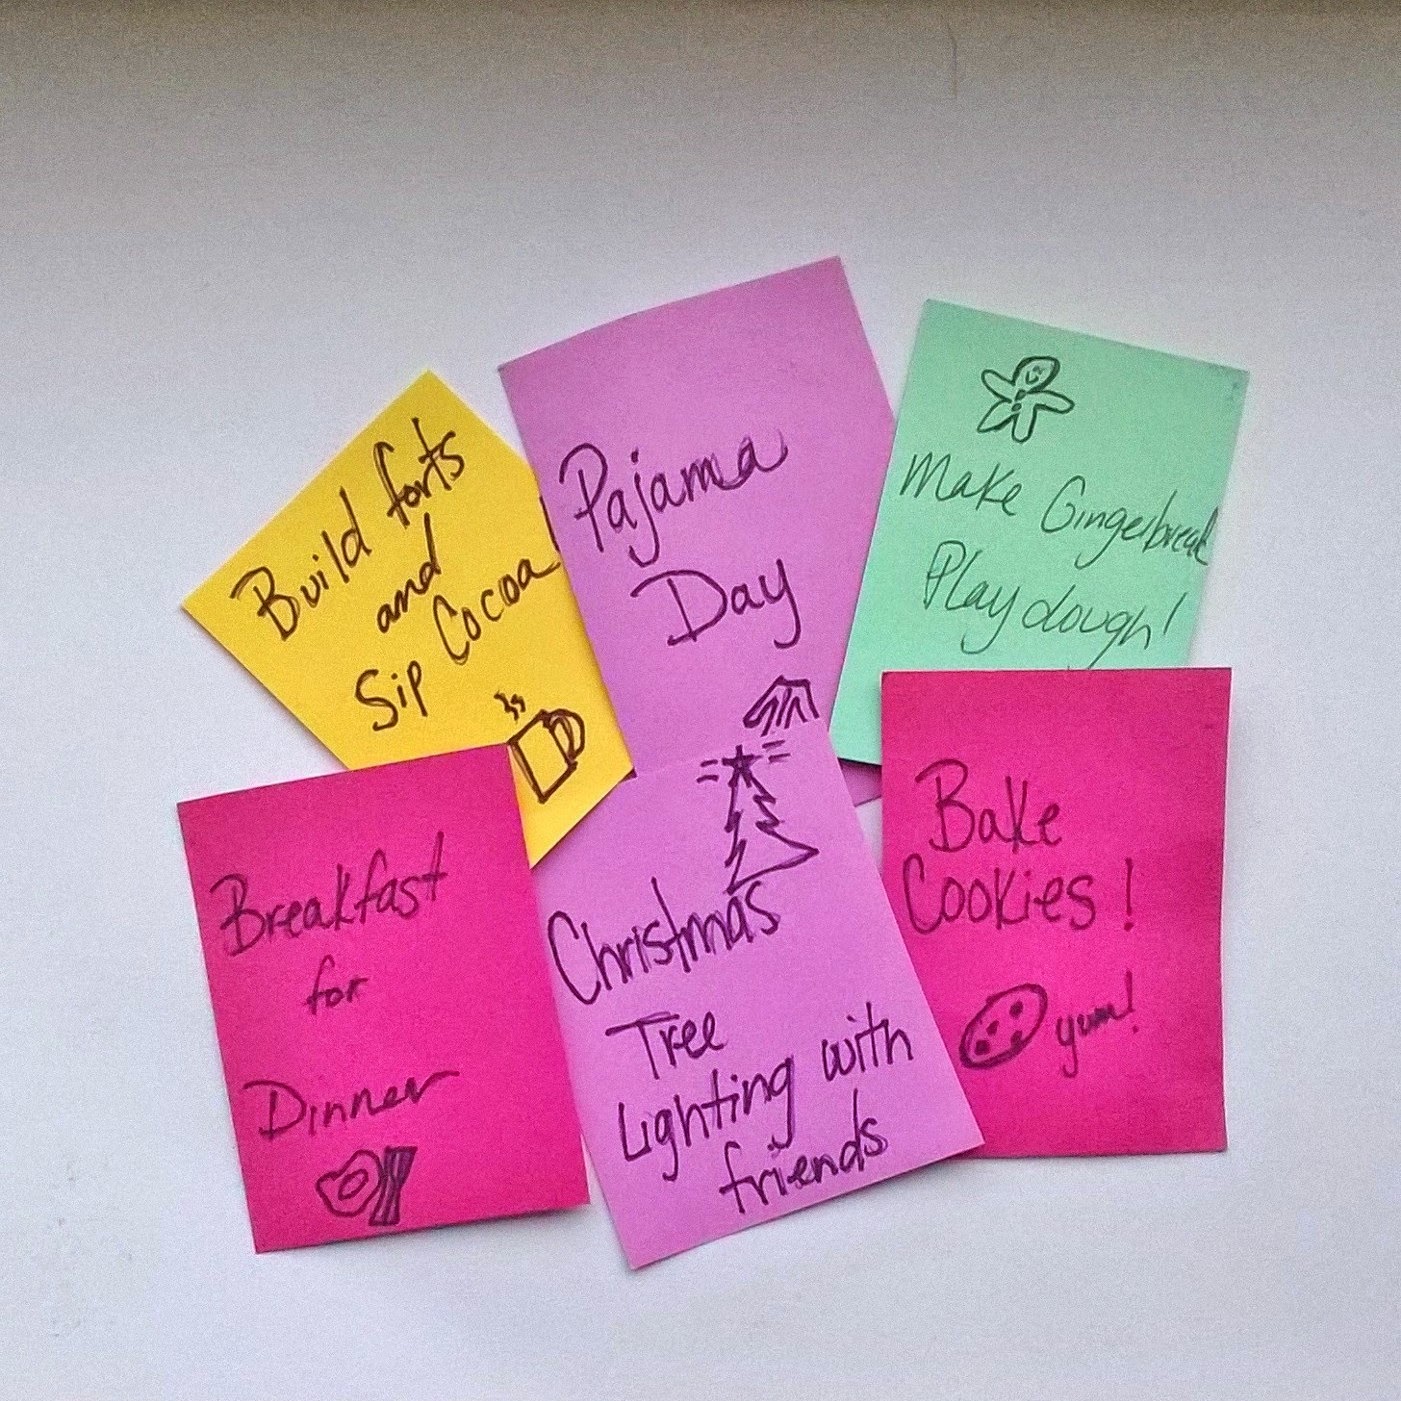 Build forts
and
Sip Cocoa!
Pajama
Day
Make Gingerbread
Playdough!
Breakfast
for
Dinner
Christmas
Tree
Lighting with
friends
Bake
Cookies!
yum!